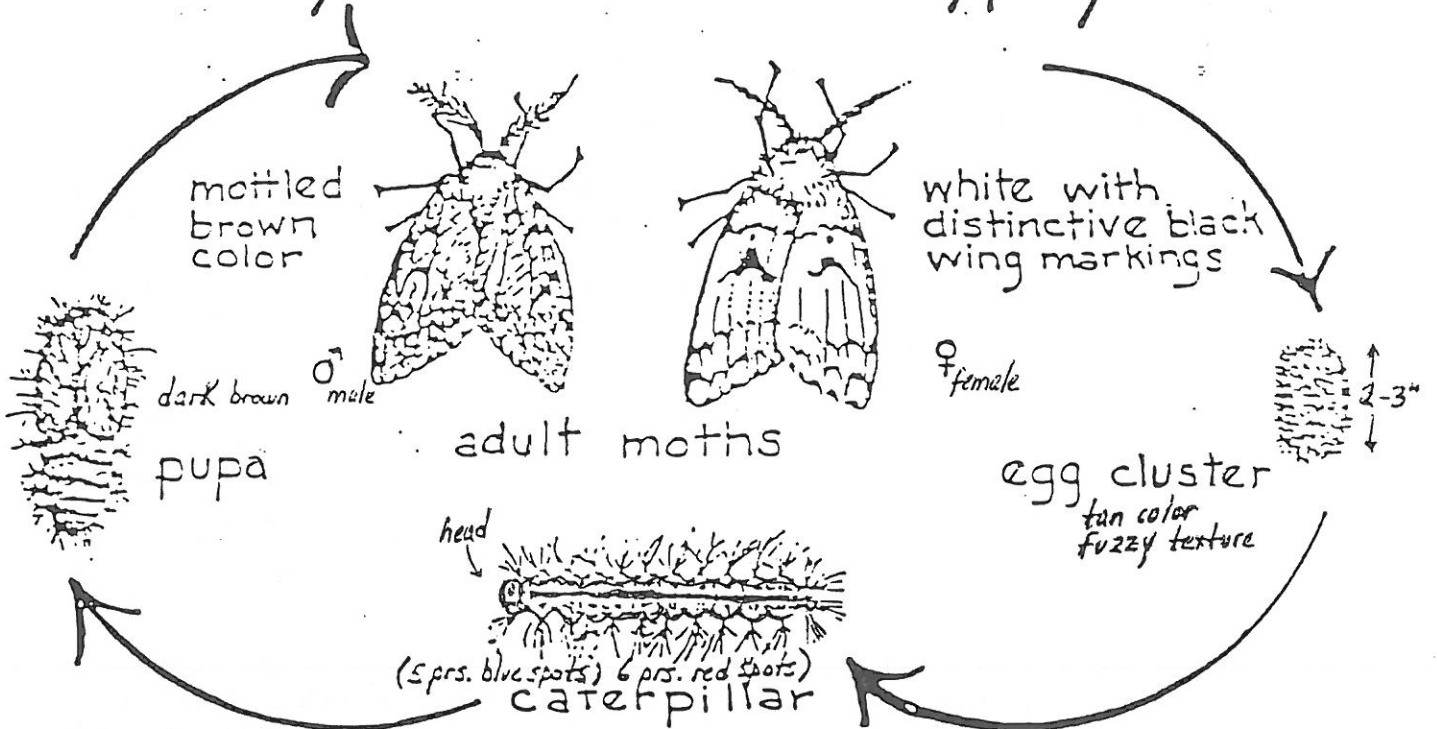 mottled
brown
color
white with
distinctive black
wing markings
♂ male
♀ female
dark brown
pupa
adult moths
2-3"
egg cluster
tan color
fuzzy texture
head
(5 prs. blue spots) 6 prs. red spots)
caterpillar